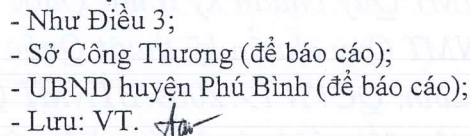 - Như Điều 3;
- Sở Công Thương (để báo cáo);
- UBND huyện Phú Bình (để báo cáo);
- Lưu: VT.